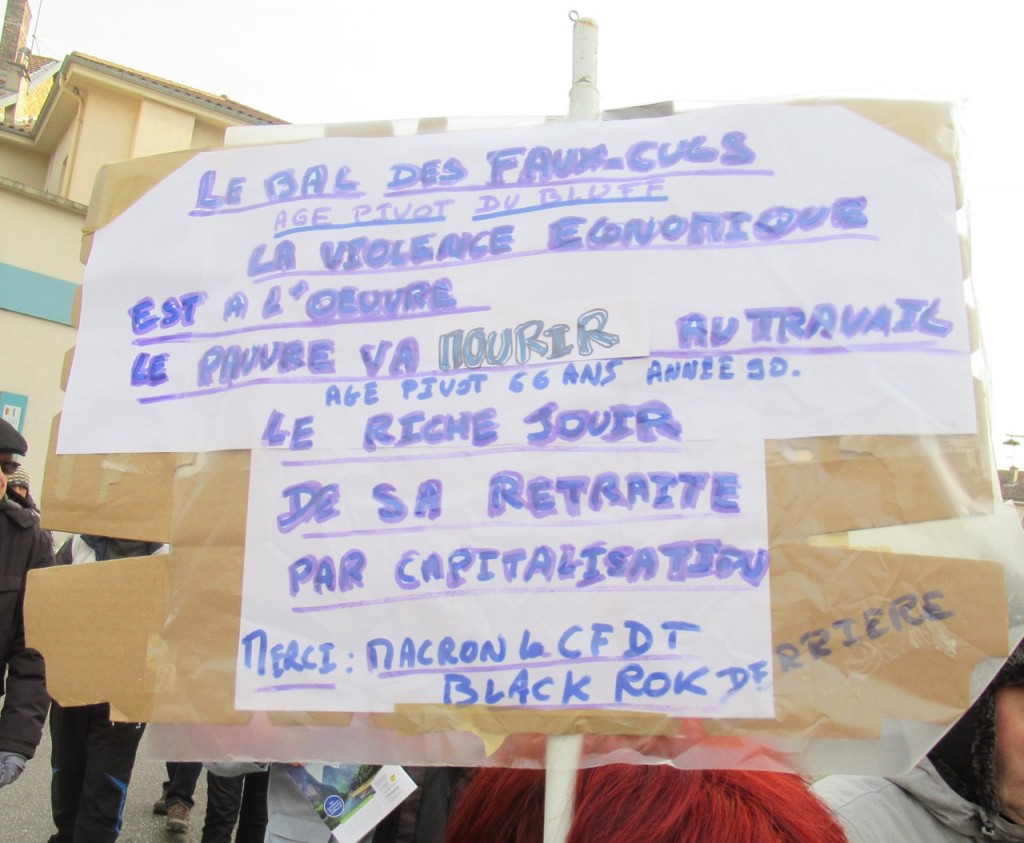 LE BAL DES FAUX-CULS
AGE PIVOT DU BLUFF
LA VIOLENCE ECONOMIQUE
EST A L'OEUVRE
LE PAUVRE VA MOURIR AU TRAVAIL
AGE PIVOT 66 ANS ANNÉE 90.
LE RICHE JOUIR
DE SA RETRAITE
PAR CAPITALISATION
MERCI : MACRON la CFDT
BLACK ROK DERRIERE